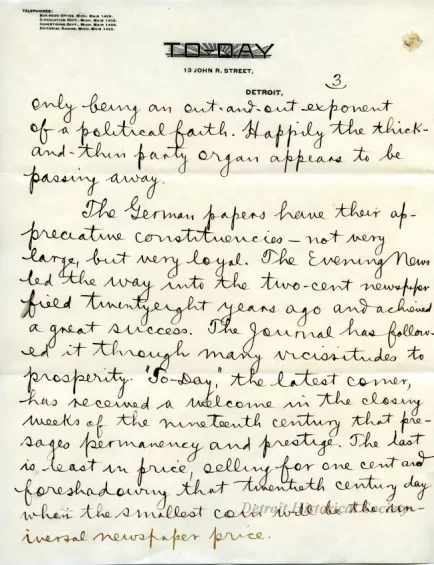 TELEPHONES:
BUSINESS OFFICE, MICH. MAIN 1400.
CIRCULATION DEPT., MICH. MAIN 1400.
ADVERTISING DEPT., MICH. MAIN 1400.
EDITORIAL ROOMS, MICH. MAIN
TO-DAY
13 JOHN R. STREET,
DETROIT,
3
only being an out-and-out exponent
of a political faith. Happily the thick-
and-thin party organ appears to be
passing away.
The German papers have their ap-
preciative constituencies – not very
large, but very loyal. The Evening News
led the way into the two-cent newspaper
field twentyeight years ago and achieved
a great success. The Journal has follow-
ed it through many vicissitudes to
prosperity. "To-Day," the latest comer,
has received a welcome in the closing
weeks of the nineteenth century that pre-
sages permanency and prestige. The last
is least in price, selling for one cent and
foreshadowing that twentieth century day
when the smallest coin will be the un-
iversal newspaper price.
Detroit Historical Society